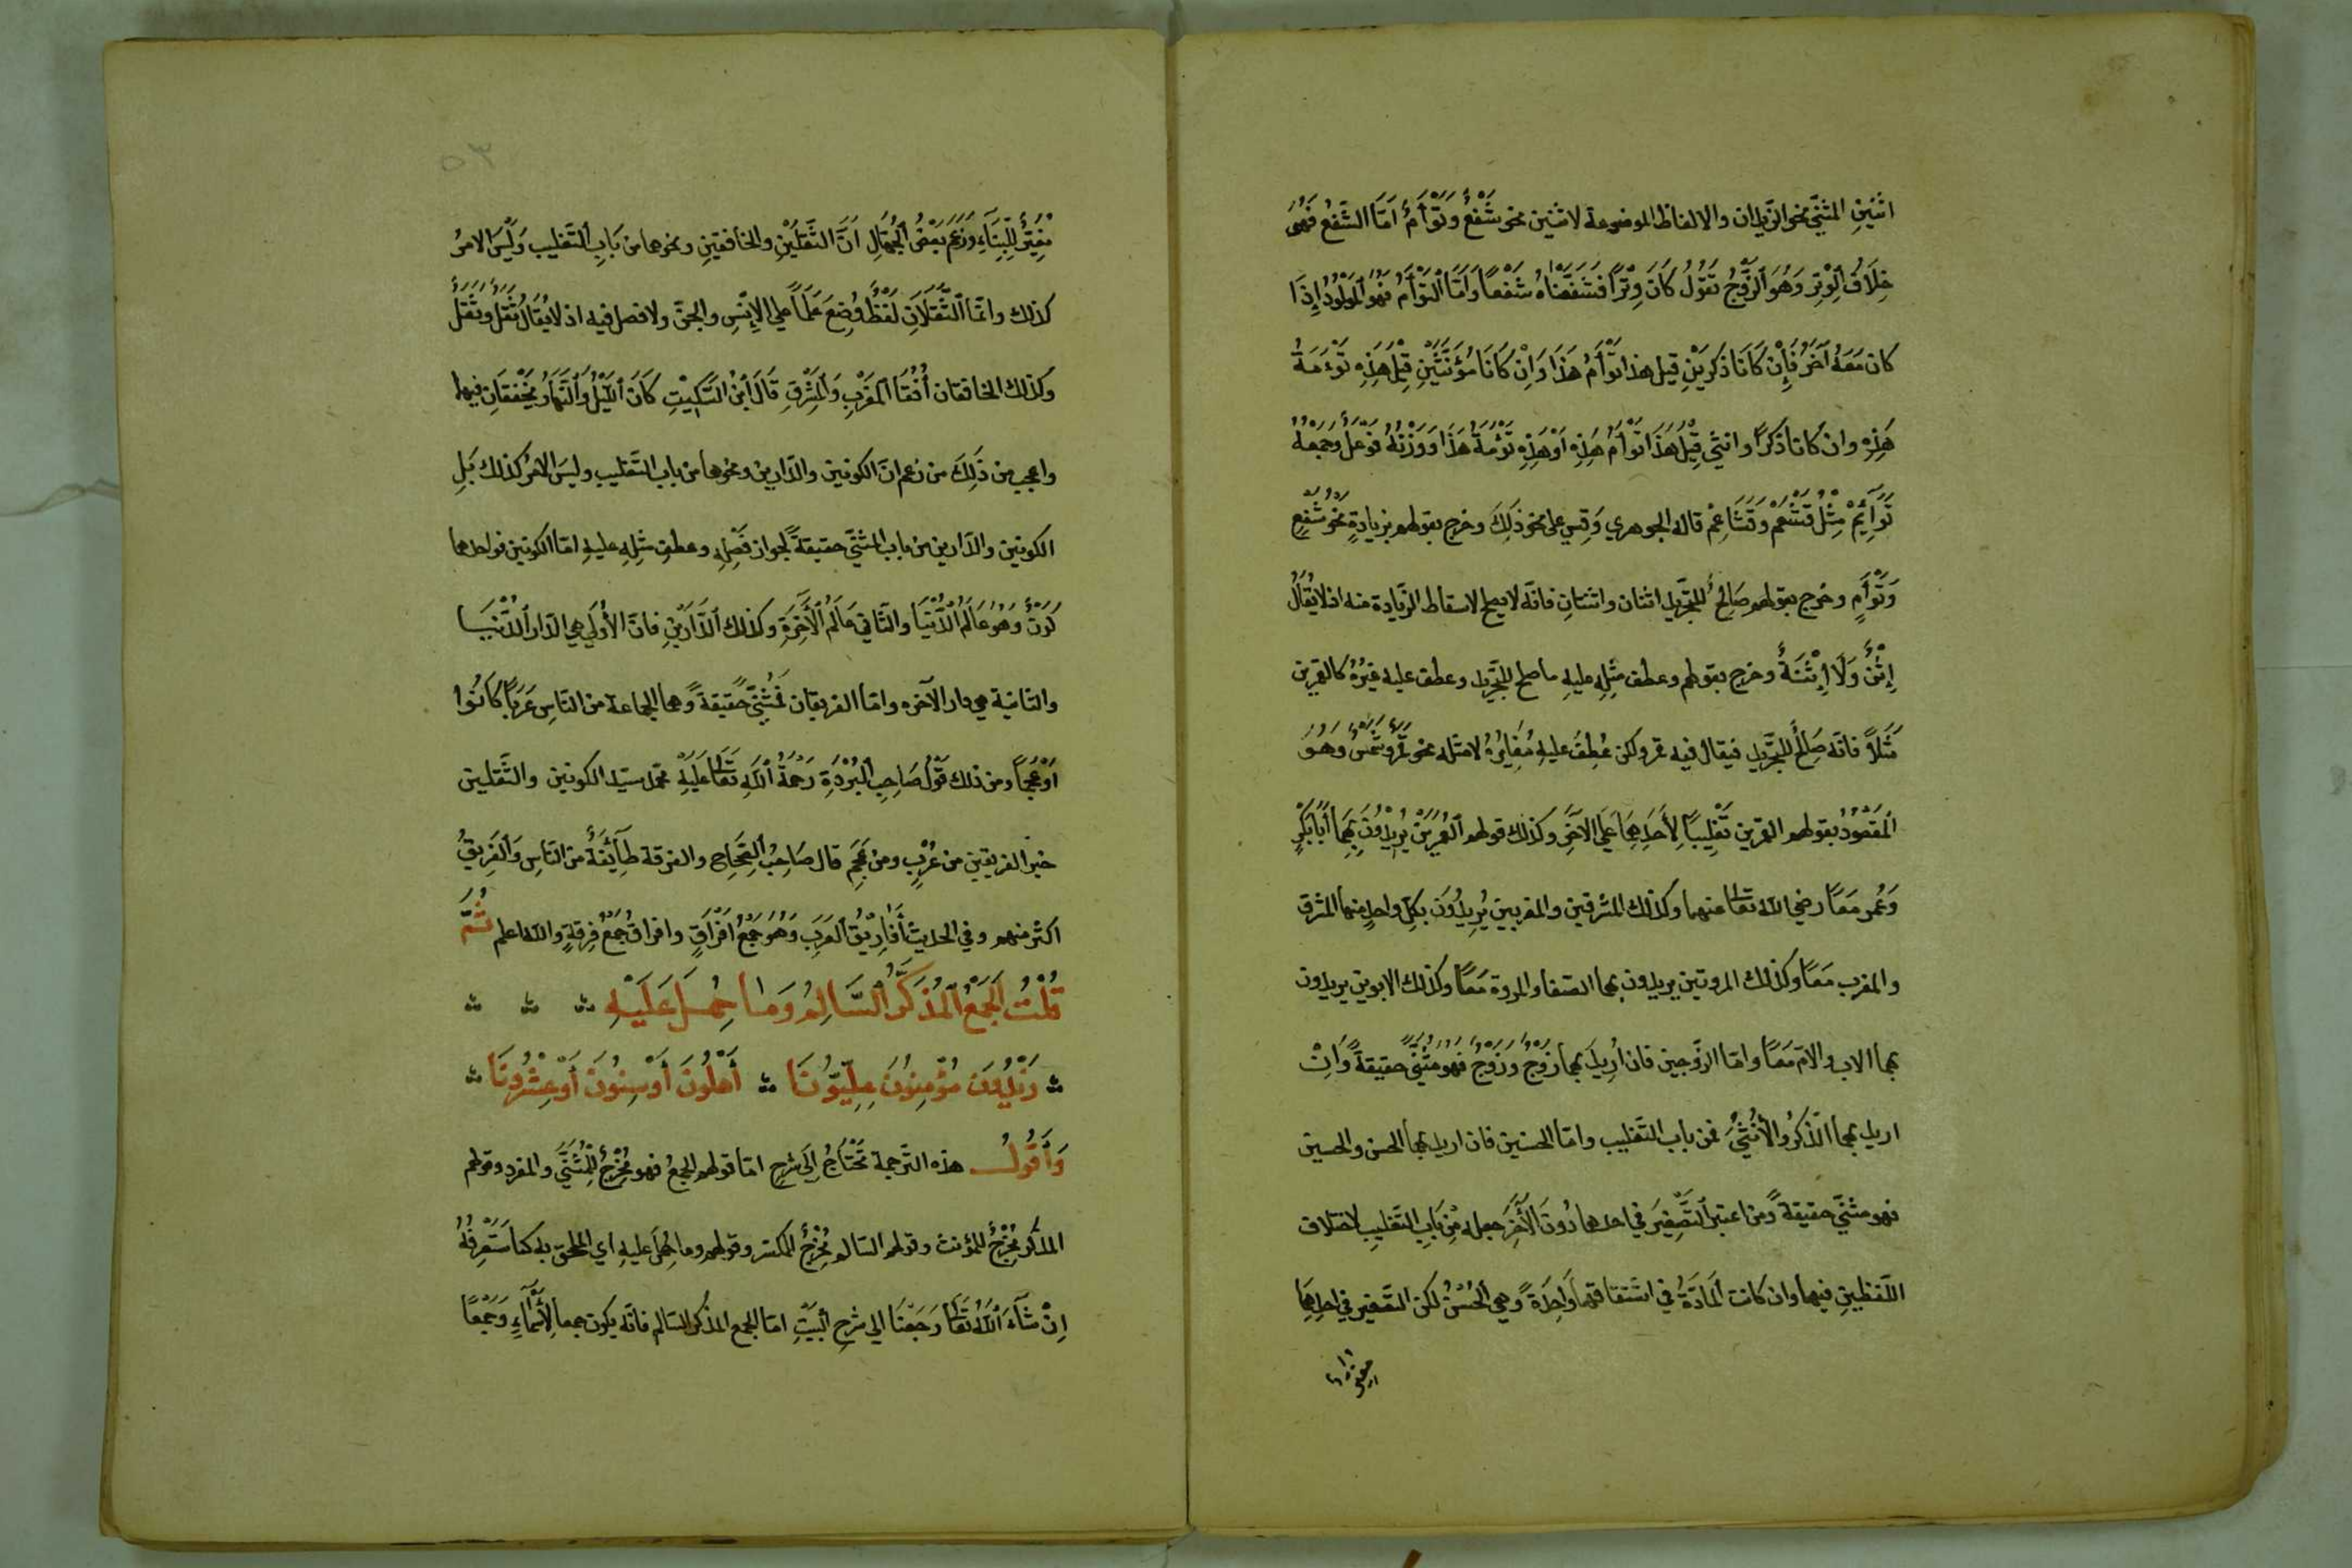 اثنَيْنِ المثنّى نحو الزّيدان والالفاظ الموضوعة لاثنين نحو شَفْعٌ وَتَوْأَمٌ امّا الشّفعُ فَهُوَ
خِلَافُ الْوِتْرِ وَهُوَ الزَّوْجُ تَقُولُ كَانَ وِتْرًا فَشَفَعْنَاهُ شَفْعًا وَامَّا التَّوْأَمُ فَهُوَ الْمَوْلُودُ إِذَا
كان مَعَهُ آخَرُ فَإِنْ كَانَا ذَكَرَيْنِ قيل هذا تَوْأَمُ هَذَا وَاِنْ كَانَا مُؤَنَّثَيْنِ قِيْلَ هَذِهِ تَوْءَمَةُ
هَذِهِ وان كانا ذَكَرًا وانثى قِيْلَ هَذَا تَوْأَمُ هَذِهِ أَوْ هَذِهِ تَوْئَمَةُ هَذَا وَوَزْنُهُ فَوْعَلٌ وَجَمْعُهُ
تَوَآئِمُ مِثْلُ قَشْعَمْ وَقَشَاعِمْ قاله الجوهري وَقِسْ على نحو ذَلِكَ وخرج بقولهم بزيادةٍ نحو شَفْعٍ
وَتَوْأَمٍ وخرج بقولهم صَالحٌ للتجريد اثنان واثنتانِ فانّه لا يصلح لاسقاط الزّيادة منه اذ لا يُقَالُ
اِثْنٌ وَلَا اِثْنَةٌ وخرج بقولهم وعطف مثلِهِ عليهِ ما صلح للتّجريد وعطف عليه غيرُهُ كالقمرين
مَثَلًا فانّه صَالِحٌ للتّجريدِ فيقال فيه قمر ولكن عُطِفَ عليهِ مُغايِرُهُ لا مثله نحو قَمَرٌ وشَمْسٌ وَهُوَ
المَقْصُودُ بقولهم القمرين تَغْلِيبًا لِأَحَدِهِمَا عَلَى الآخَرِ وكذلك قولهم الْعُمَرَيْنِ يُرِيْدُونَ بِهِمَا أَبَا بَكْرٍ
وَعُمر مَعًا رضي الله تعالى عنهما وكذلك المشرقين والمغربين يُرِيدُونَ بكلّ واحدٍ منهما المشرق
والمغرب مَعًا وكذلك المروتين يريدون بهما الصّفا والمروة مَعًا وكذلك الابوين يريدون
بهما الاب والامّ مَعًا وامّا الزّوجين فان اُرِيدَ بهما زَوْجٌ وَزَوْجٌ فهو مثنّى حقيقةً وَاِنْ
اريد بهما الذّكَرُ والأُنثى فمن باب التّغليب وامّا الحسنين فان اريد بهما الحسن والحسين
فهو مثنّى حقيقةً ومن اعتبر التَّصْغِيرَ في احدهما دُونَ الآخَرِ جعله مِن بَابِ التّغليبِ لاختلاف
اللّفظين فيهما وان كانت المادّةُ في اشتقاقهما واحِدَةً وهي الحُسْنُ لكن التّصغير في احدِهِمَا
٥٣
مُغَيِّرٌ لِلْبِنَآءِ وَزَعَمَ بَعْضُ الْجُهَّالِ انَّ الثَّقَلَيْنِ والخافقين ونحوهما من بَابِ التَّغليب وَلَيْسَ الامرُ
كذلك وانّما الثَّقَلَانِ لَفْظٌ وُضِعَ عَلَمًا على الإِنْسِ والجنّ ولا فصل فيه اذ لا يُقَالُ ثَقَلٌ وَثَقَلٌ
وكذلك الخافقان أُفُقَا المَغْرِبِ وَالمَشْرِقِ قَالَ ابْنُ السِّكِّيْتِ كَانَ اللَّيْلُ وَالنَّهَارُ يَخْفِقَانِ فيهما
واعجب من ذَلِكَ من زعم انّ الكونين والدّارين ونحوهما من باب التّغليب وليسَ الامرُ كذلك بَلِ
الكونين والدّارين من باب المثنّى حقيقةً لجواز فَصْلِهِ وعطفِ مثلِهِ عليهِ امّا الكونين فواحدهما
كَوْنٌ وَهُوَ عَالَمُ الدُّنْيَا والثّاني عَالَمُ الْآخِرَةِ وكذلك الدَّارَيْنِ فانّ الأُولَى هي الدّار الدُّنْيَا
والثّانية هي دار الآخره وامّا الفريقان فَمُثَنّى حَقيقةً وهما الجماعة من النّاسِ عَرَبًا كَانُوا
اَوْ عَجَمًا ومن ذلك قَوْلُ صَاحِبِ البُرْدَةِ رَحْمَةُ اللهِ تَعَالَى عَلَيْهِ محمّد سيّد الكونين والثّقلين
خير الفريقين من عُرْبٍ ومن عَجَمِ قال صَاحِبُ الصِّحَاحِ والفرقة طَآئِفَةٌ من النّاسِ وَالفَرِيقُ
اكثر منهم وفي الحديث أَفَارِيقُ العَرَبِ وَهُوَ جَمْعُ اَفْرَاقٍ وافراق جَمْعُ فِرقةٍ والله اعلم ثُمَّ
قُلْتُ الجَمْعُ المُذَكَّرُ السَّالِمُ وَمَا حُمِلَ عَلَيْهِ
زَيْدُونَ مُؤْمِنُونَ عِلِّيّوْنَا أَهْلُونَ أَوْ سِنُونَ أَوْ عِشْرُونَا
وَأَقُولُ هذه التّرجمة تَحْتَاجُ اِلَى شرحٍ امّا قولهم الجمعُ فهو مُخْرِجٌ لِلْمُثَنَّى والمفرد وقولهم
المذكّر مُخْرِجٌ للمؤنث وقولهم السّالم مُخْرِجٌ المكسّر وقولهم وما حُمِلَ عليهِ اي الملحق به كما سَتَعْرِفُهُ
اِنْ شَآءَ اللهُ تَعَالَى رَجَعْنَا الى شرحِ البَيْتِ امّا الجمع المذكّر السّالم فانّه يكون جمعا لِأَسْمَآءِ وَجَمْعًا